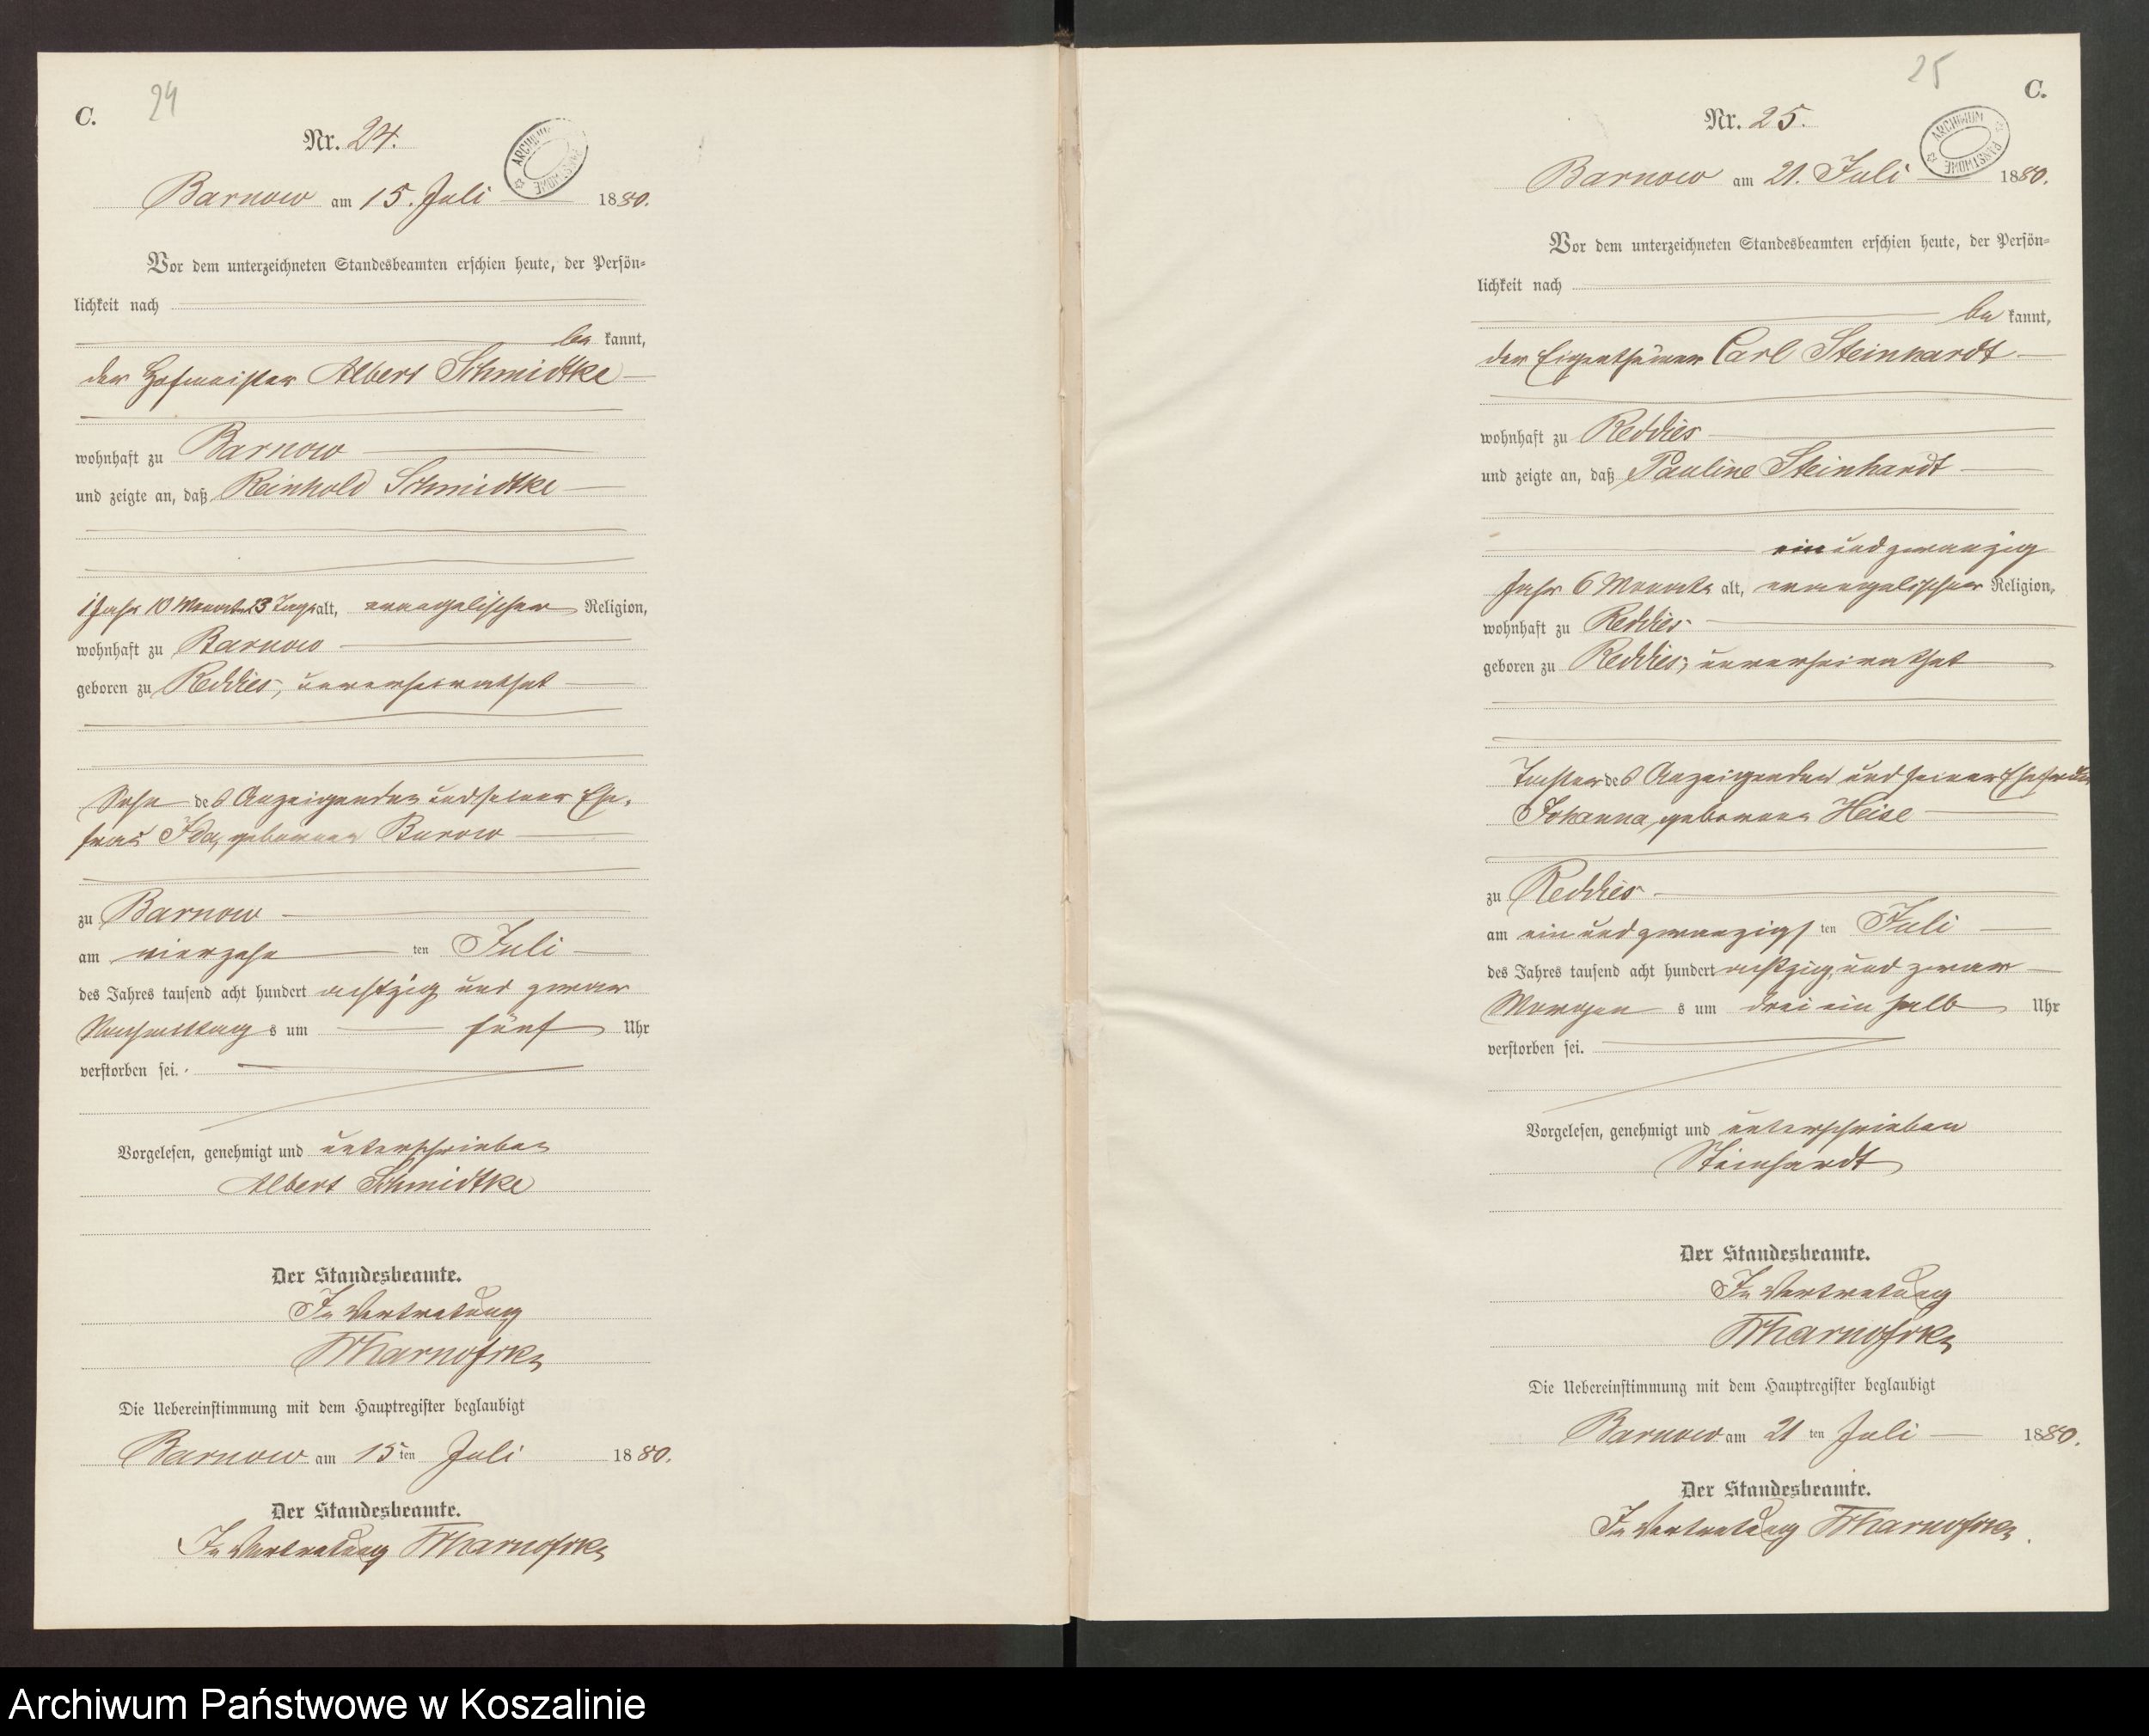 C.
24
Nr. 24.
ARCHIWUM PAŃSTWOWE
Barnow am 15. Juli 1880.
Vor dem unterzeichneten Standesbeamten erschien heute, der Persön-
lichkeit nach
be kannt,
der Hofmeister Albert Schmidtke
wohnhaft zu Barnow
und zeigte an, daß Reinhold Schmidtke
1 Jahr 10 Monate 23 Tage alt, evangelischer Religion,
wohnhaft zu Barnow
geboren zu Reddies, unverheirathet
Sohn des Anzeigenden und seiner Ehe-
frau Ida, geborenen Burow
zu Barnow
am vierzehn ten Juli
des Jahres tausend acht hundert achtzig und zwar
Nachmittag s um fünf Uhr
verstorben sei.
Vorgelesen, genehmigt und unterschrieben
Albert Schmidtke
Der Standesbeamte.
In Vertretung
Die Uebereinstimmung mit dem Hauptregister beglaubigt
Barnow am 15 ten Juli 1880.
Der Standesbeamte.
In Vertretung
25
C.
Nr. 25.
ARCHIWUM PAŃSTWOWE
Barnow am 21. Juli 1880.
Vor dem unterzeichneten Standesbeamten erschien heute, der Persön-
lichkeit nach
be kannt,
der Eigenthümer Carl Steinhardt
wohnhaft zu Reddies
und zeigte an, daß Pauline Steinhardt
ein und zwanzig
Jahr 6 Monate alt, evangelischer Religion,
wohnhaft zu Reddies
geboren zu Reddies, unverheirathet
Tochter des Anzeigenden und seiner Ehefrau
Johanna, geborenen Heise
zu Reddies
am ein und zwanzigs ten Juli
des Jahres tausend acht hundert achtzig und zwar
Morgen s um drei ein halb Uhr
verstorben sei.
Vorgelesen, genehmigt und unterschrieben
Steinhardt
Der Standesbeamte.
In Vertretung
Die Uebereinstimmung mit dem Hauptregister beglaubigt
Barnow am 21 ten Juli 1880.
Der Standesbeamte.
In Vertretung
Archiwum Państwowe w Koszalinie